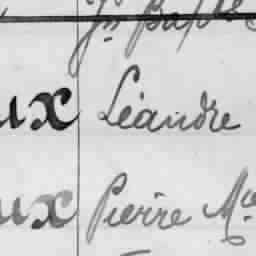 Jn Bapte
ux Léandre
ux Pierre Mce